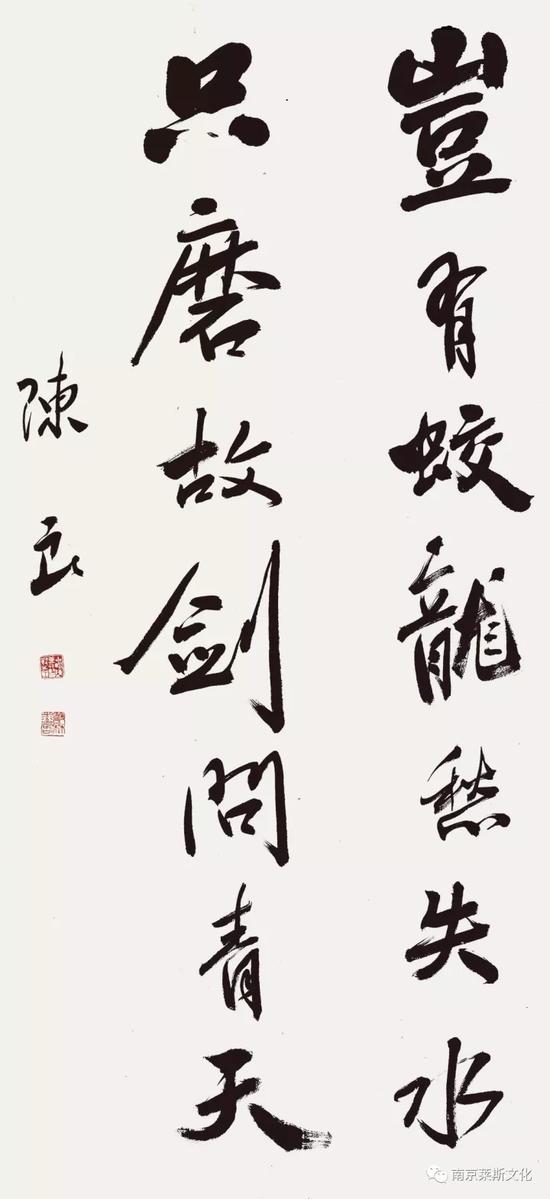 豈有蛟龍愁失水
只磨故剑問青天
陳
南京莱斯文化